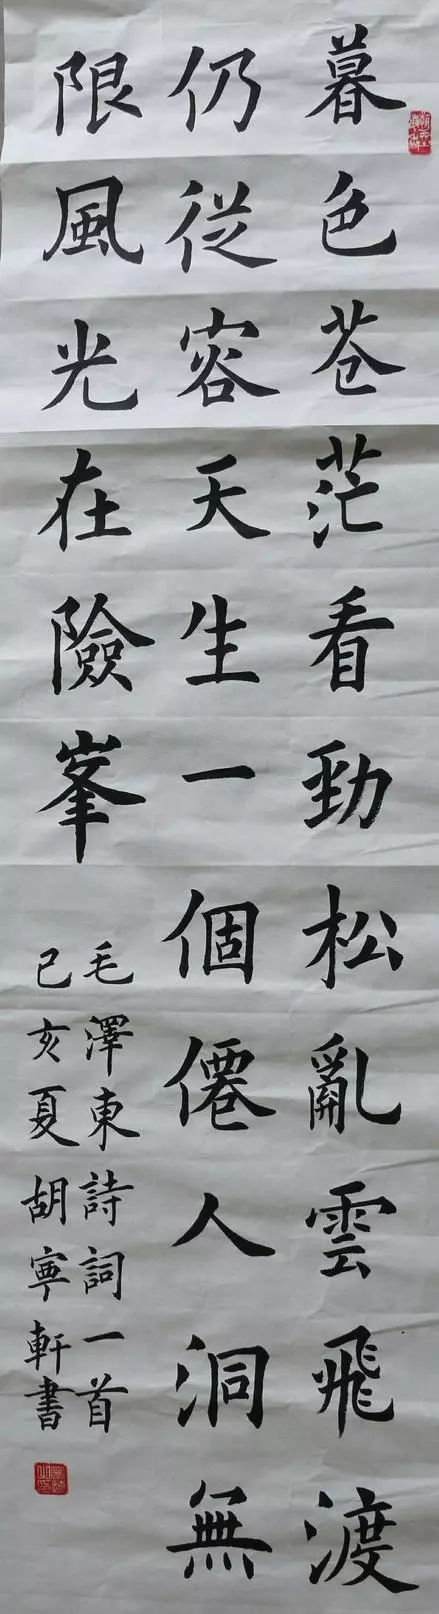 暮色苍茫看勁松亂雲飛渡
仍從容天生一個僊人洞無
限風光在險峯
毛澤東詩詞一首
己亥夏胡寧軒書